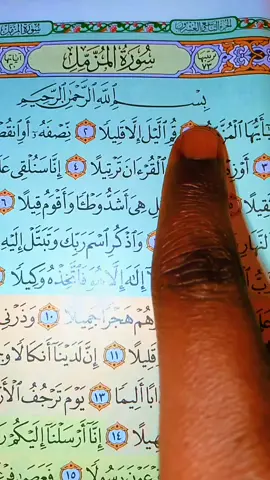 سُورَةُ المُزَّمِّلِ
سُورَةُ المُزَّمِّلِ
بِسْمِ اللَّهِ الرَّحْمَٰنِ الرَّحِيمِ
يَٰٓأَيُّهَا قُمِ ٱلَّيْلَ إِلَّا قَلِيلًا ٢ نِّصْفَهُۥٓ أَوِ ٱنقُصْ
٣ أَوْ ٱلْقُرْءَانَ تَرْتِيلًا ٤ إِنَّا سَنُلْقِى
هِىَ أَشَدُّ وَطْـًٔا وَأَقْوَمُ قِيلًا ٦
وَٱذْكُرِ ٱسْمَ رَبِّكَ وَتَبَتَّلْ إِلَيْهِ
إِلَٰهَ إِلَّا هُوَ فَٱتَّخِذْهُ وَكِيلًا
هُمْ هَجْرًا جَمِيلًا ١٠ وَذَرْنِى
قَلِيلًا ١١ إِنَّ لَدَيْنَآ أَنكَالًا
أَلِيمًا ١٣ يَوْمَ تَرْجُفُ
١٤ إِنَّآ أَرْسَلْنَآ إِلَيْكُمْ
رَسُولًا ١٥ فَعَصَىٰ